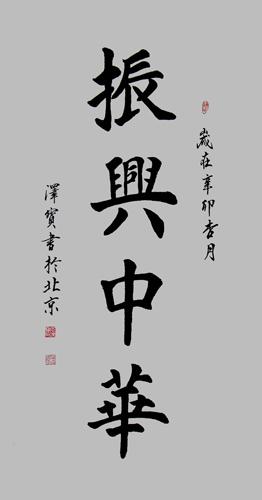 歲在辛卯杏月
振興中華
澤寶書於北京